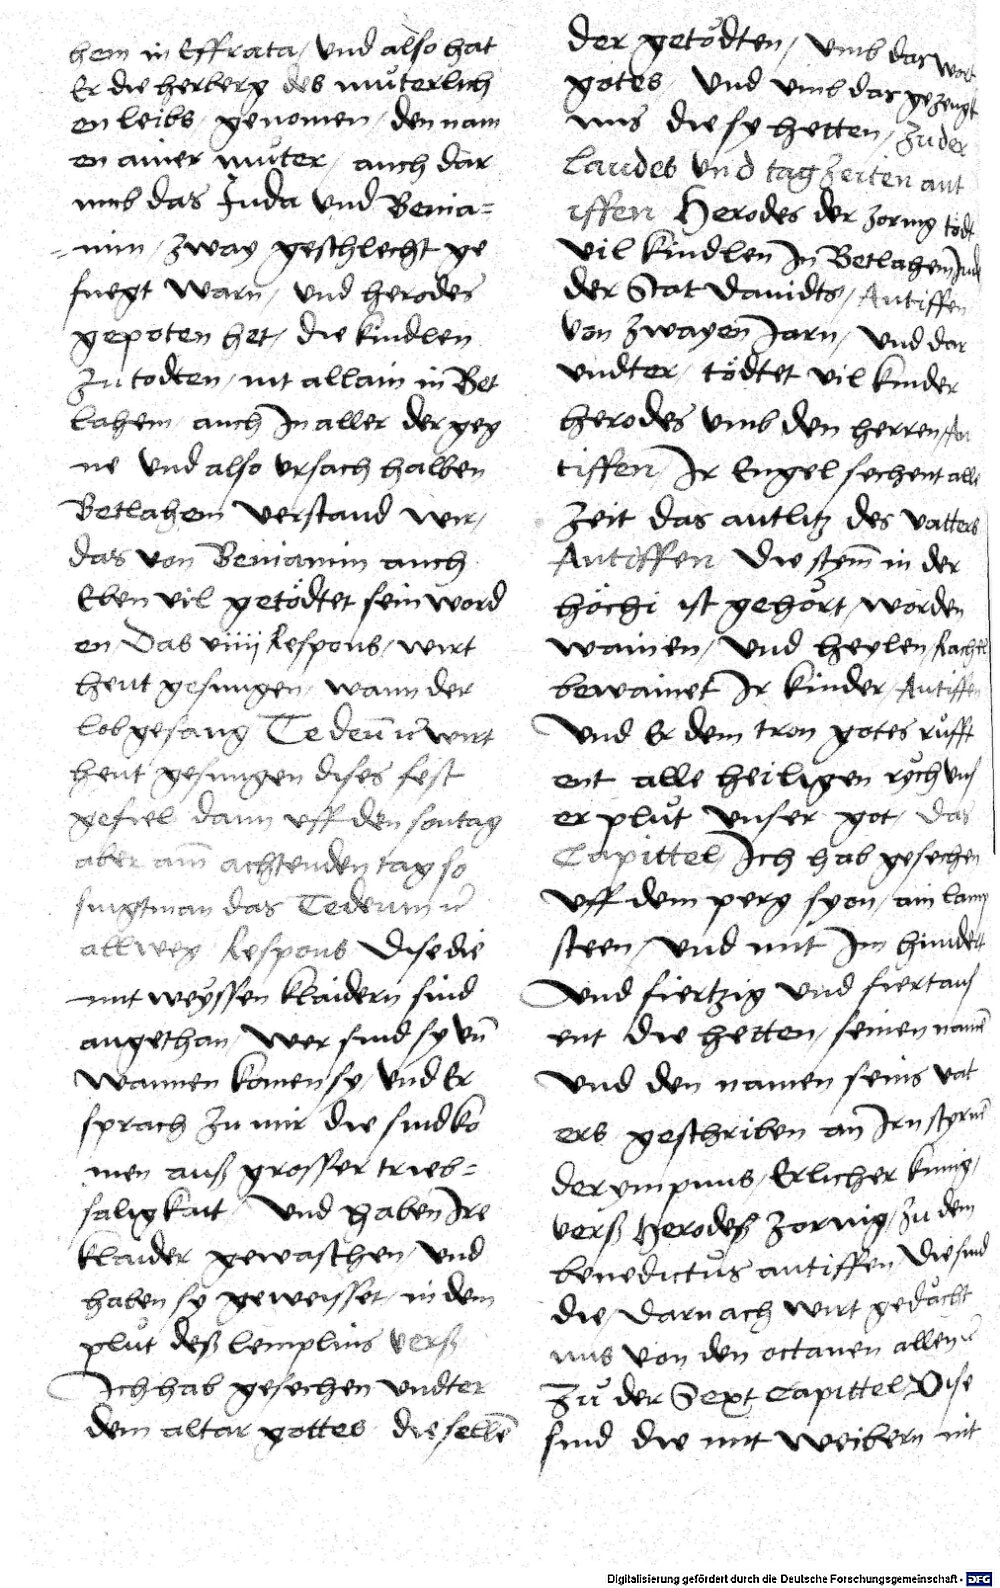 hem in Effrata / Und also hat
Er die herberg des můterlich
en leibs / genomen / den nam
en ainer můter / auch dar
umb das Juda und Benia=
=min / zway geschlecht ge
fuegt warn / und herodes
gepoten het / die kindlen
zu todten / nit allain in Bet
lahem / auch In aller der geg
ne und also ursach halben
Betlahem verstand wir /
das von Beniamin auch
Eben vil getödtet sein word
en Das viiij Respons / wirt
heut gesungen / wann der
lobgesang Te deū ꝛc wirt
heut gesungen dises fest
gefiel dann uff den sontag
aber am achtenden tag so
singt man das Tedeum ꝛc
allweg Respons Dise die
mit weyssen klaidern sind
angethan / wer sind sy vn̄
wannen komen sy / und Er
sprach zu mir die sind ko
men auß grosser trieb=
saligkait / Und haben Ire
klaider gewaschen / und
haben sy geweisset / in dem
plůt deß lemplins verß
Ich hab gesechen undter
dem altar gottes die sellē
der getödten / umb das wort
gotes und umb das gezeugk
nus die sy hetten / zu der
Laudes und tagzeiten ant
iffen Herodes der zornig tödt
vil kindlen In Betlahem Jude
der Stat Dauidts / Antiffen
Von zwayen Jarn / und dar
undter / tödtet vil kinder
herodes umb den herren / An
tiffen / Ir Engel sechent alle
zeit das antlitz des vatters
Antiffen Die stym̄ in der
höchi ist gehört / worden
wainen / und heylen Rachel
bewainet Ir kinder / Antiffen
Und Er dem tron gotes růfft
ent alle heiligen rych uns
er plůt unser got / das
Capittel / Ich hab gesechen
uff dem perg syon / ain lamp
steen / und mit Im hundert
und fiertzig und fiertaus
ent die hetten / seinen namē
und den namen seins vat
ers geschriben an Irn styrnē
der ympnus / Erlicher kunig /
verß Herodeß zornig / zu dem
benedictůs antiffen Die sind
die / darnach wirt gedächt
nus von den octauen allen ꝛc
Zů der Sext Capittel / Dise
sind die mit weibern nit
Digitalisierung gefördert durch die Deutsche Forschungsgemeinschaft - DFG